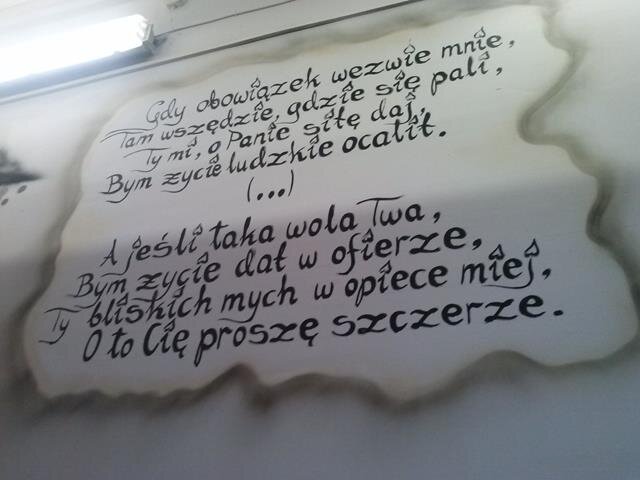 Gdy obowiązek wezwie mnie,
Tam wszędzie, gdzie się pali,
Ty mi, o Panie siłę daj,
Bym życie ludzkie ocalił.
(...)
A jeśli taka wola Twa,
Bym życie dał w ofierze,
Ty bliskich mych w opiece miej,
O to Cię proszę szczerze.